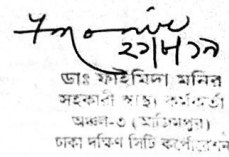 ২৭/৮/১৯
ডাঃ ফাহমিদা মনির
সহকারী স্বাস্থ্য কর্মকর্তা
অঞ্চল-৩ (আজিমপুর)
ঢাকা দক্ষিণ সিটি কর্পোরেশন